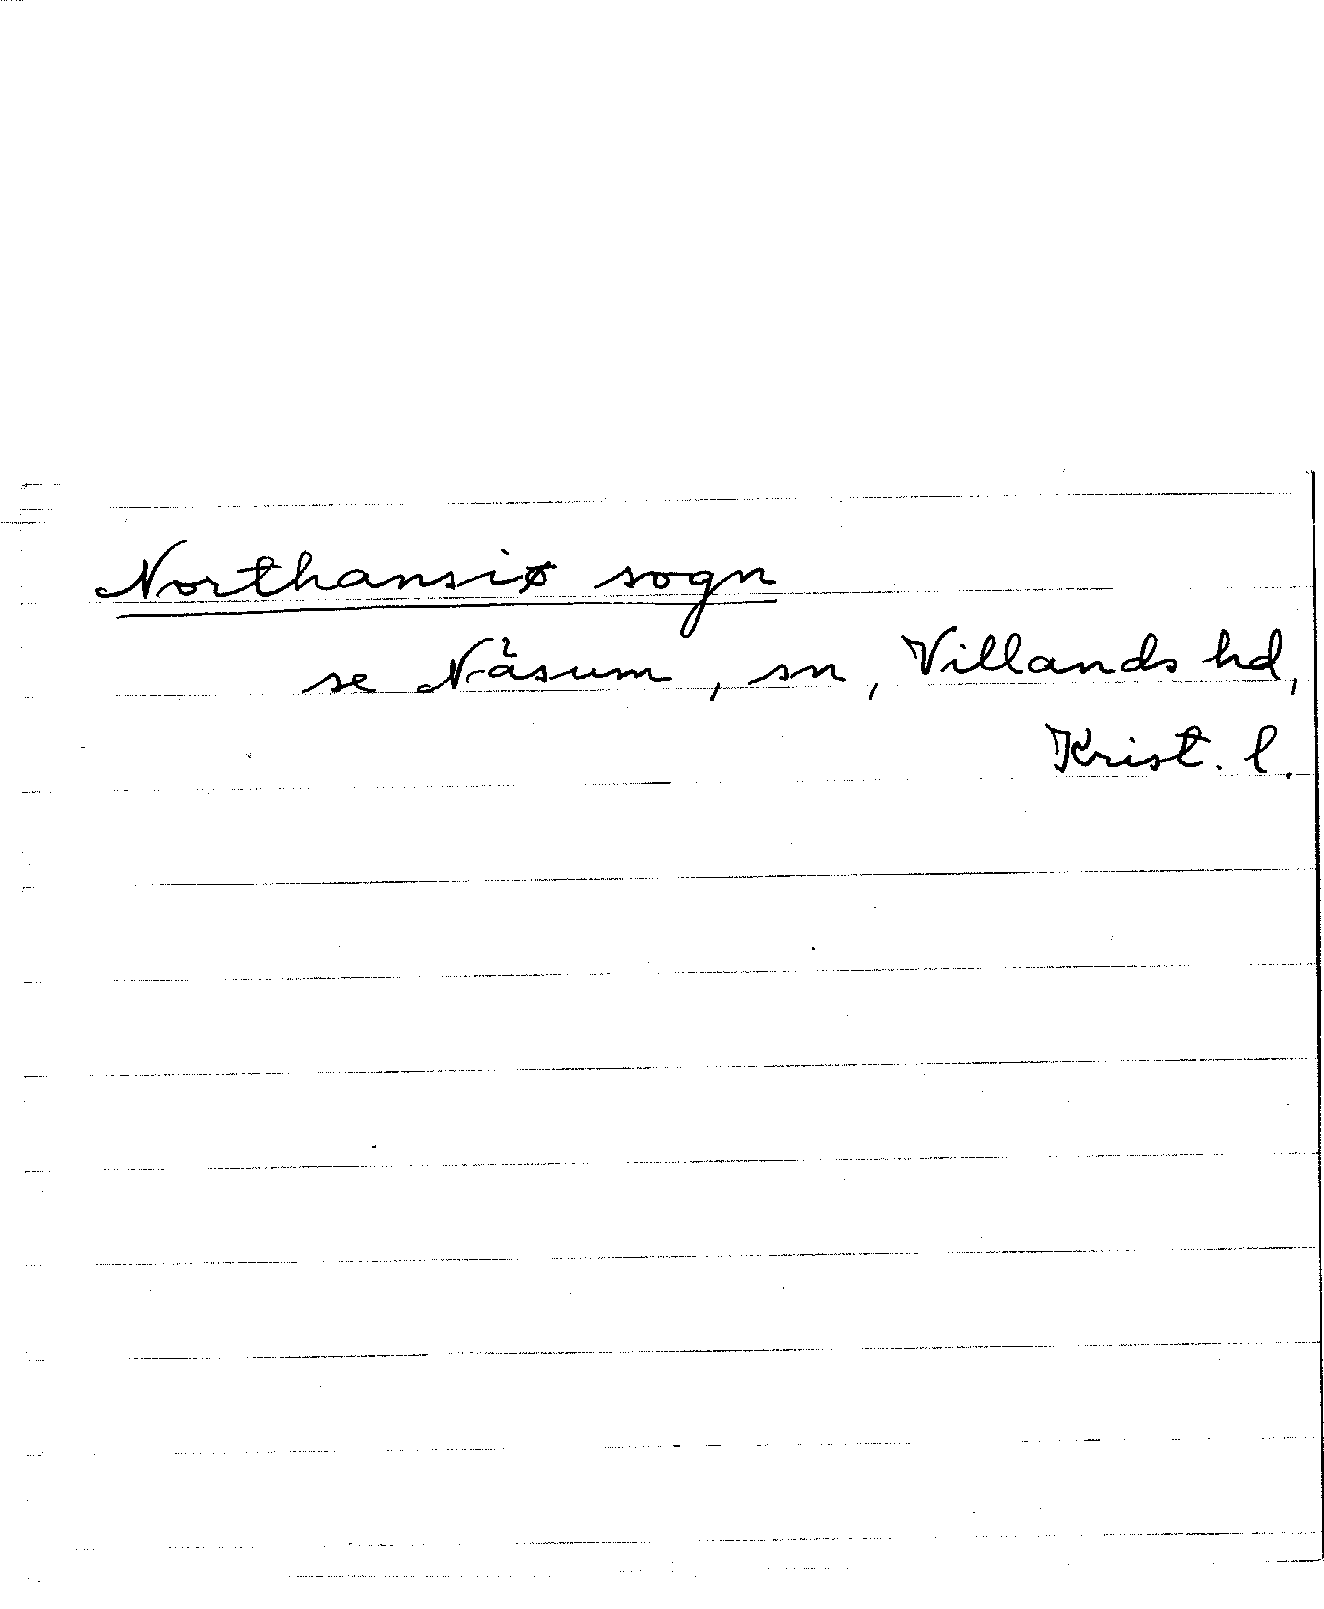 Northansiø sogn
se Näsum, sn, Villands hd,
Krist. l.